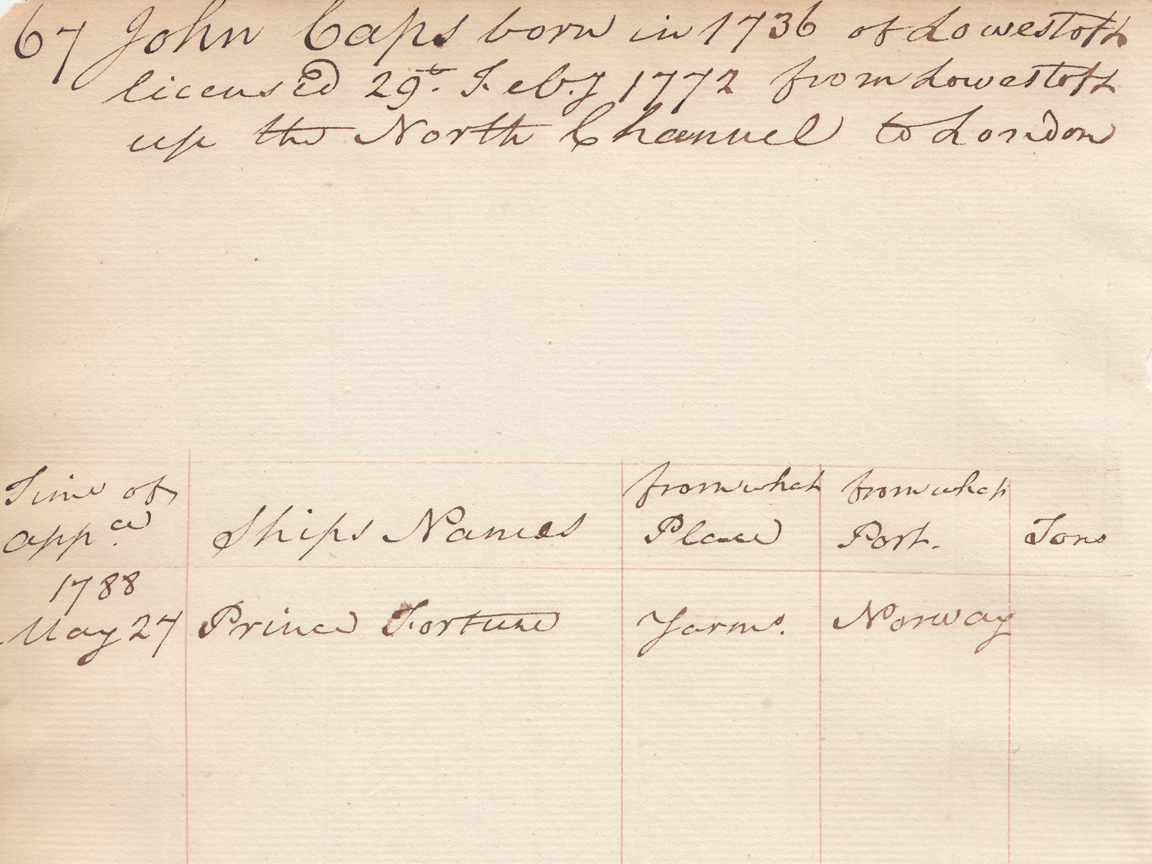 67 John Caps born in 1736 of Lowestoft
licensed 29t. Feby 1772 from Lowestoft
up the North Channel to London
Time of
appce.
Ships Names
from what
Place
from what
Port.
Tons
1788
May 27 Prince Fortune Yarmo. Norway